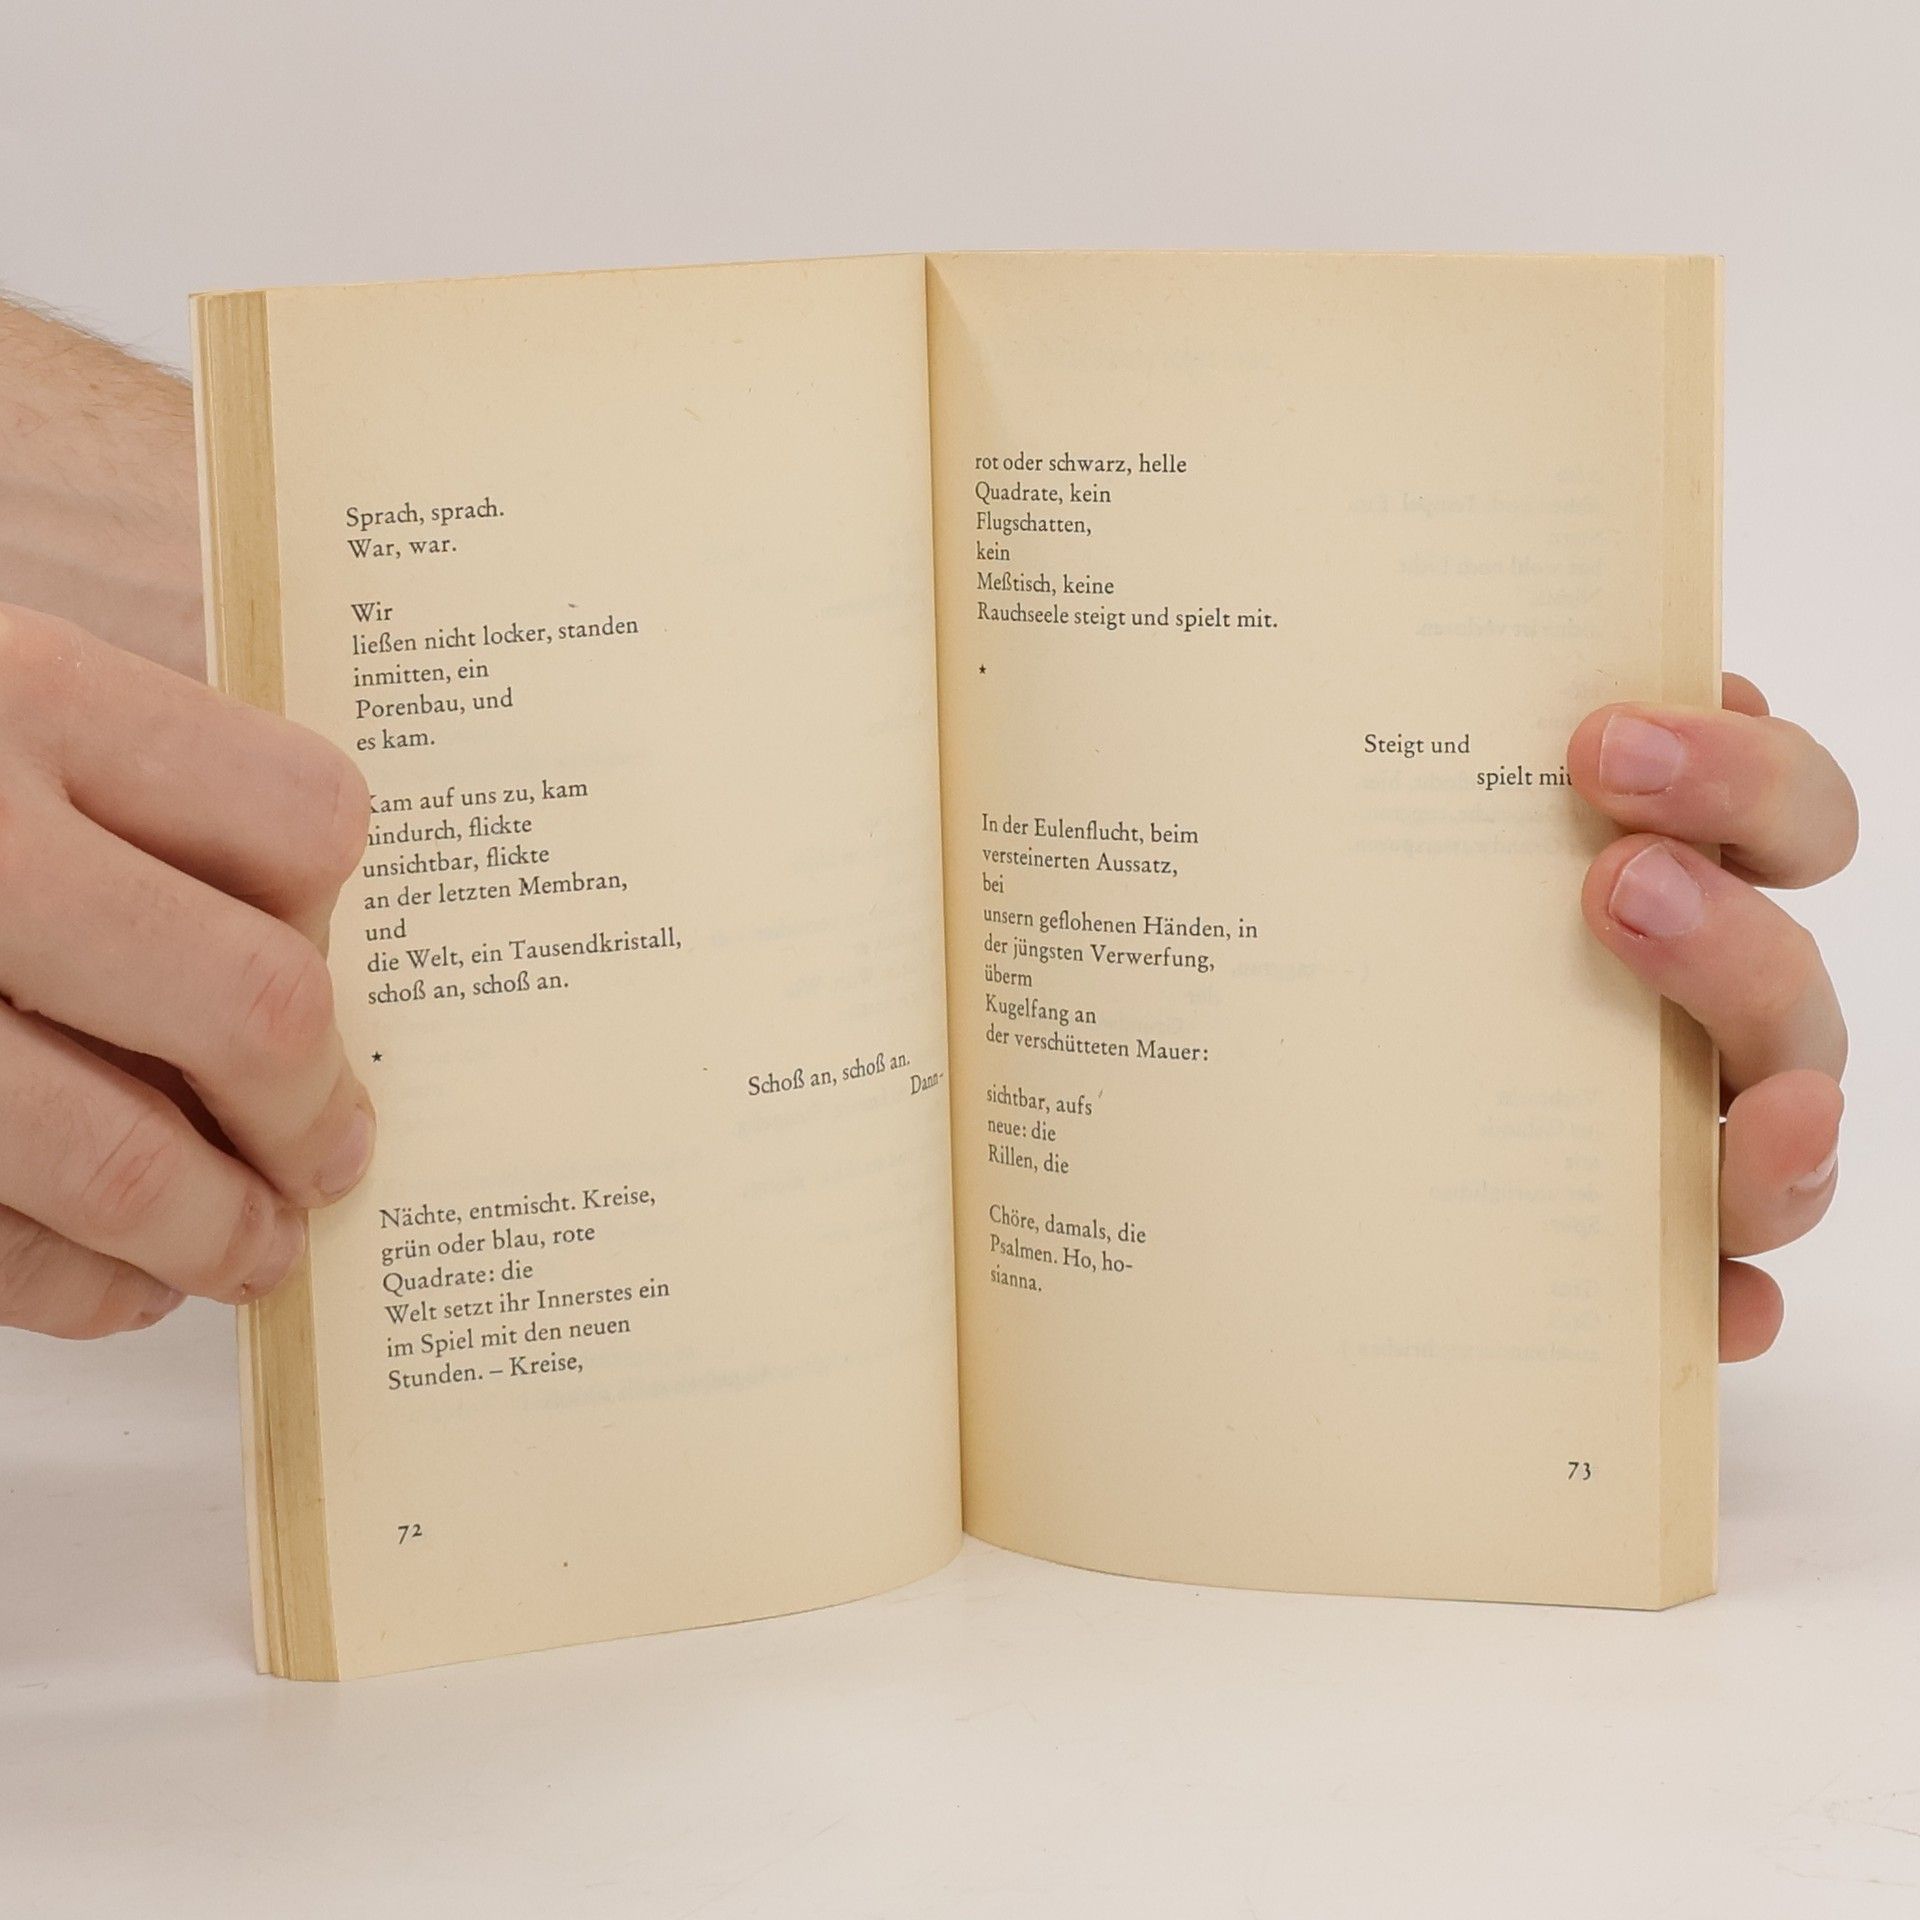 Sprach, sprach.
War, war.
Wir
ließen nicht locker, standen
inmitten, ein
Porenbau, und
es kam.
Kam auf uns zu, kam
hindurch, flickte
unsichtbar, flickte
an der letzten Membran,
und
die Welt, ein Tausendkristall,
schoß an, schoß an.
*
Schoß an, schoß an.
Dann-
Nächte, entmischt. Kreise,
grün oder blau, rote
Quadrate: die
Welt setzt ihr Innerstes ein
im Spiel mit den neuen
Stunden. – Kreise,
72
rot oder schwarz, helle
Quadrate, kein
Flugschatten,
kein
Meßtisch, keine
Rauchseele steigt und spielt mit.
*
Steigt und
spielt mit
In der Eulenflucht, beim
versteinerten Aussatz,
bei
unsern geflohenen Händen, in
der jüngsten Verwerfung,
überm
Kugelfang an
der verschütteten Mauer:
sichtbar, aufs
neue: die
Rillen, die
Chöre, damals, die
Psalmen. Ho, ho-
sianna.
73